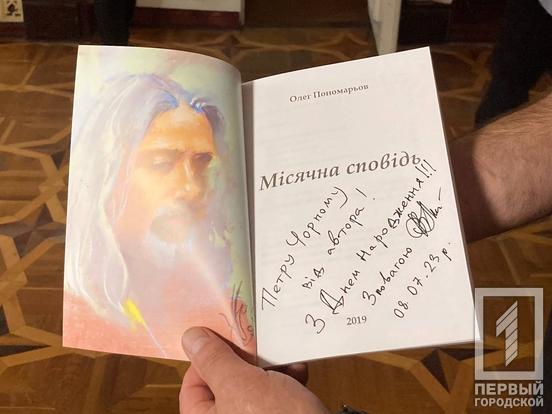 Олег Пономарьов
Місячна сповідь
Петру Чорному
від автора!
З Днем народження!!!
З повагою
08.07.23 р.
2019
1
ПЕРВЫЙ
ГОРОДСКОЙ